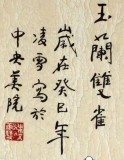 玉蘭雙雀
歲在癸巳年
凌雪寫於
中央美院